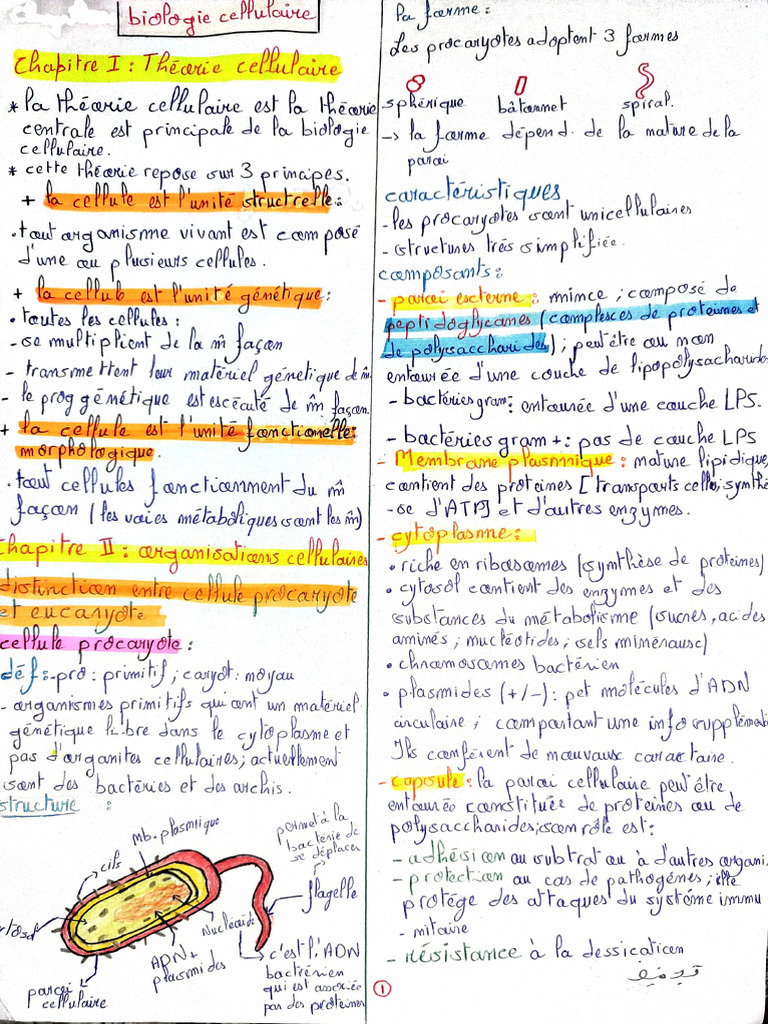 biologie cellulaire
Chapitre I : Théorie cellulaire
* la théorie cellulaire est la théorie
centrale est principale de la biologie
cellulaire.
* cette théorie repose sur 3 principes.
+ la cellule est l'unité structrelle :
• tout organisme vivant est composé
d'une ou plusieurs cellules.
+ la cellule est l'unité génétique :
• toutes les cellules :
- se multiplient de la m̂ façon
- transmettent leur matériel génetique de m̂.
- le prog génétique est escécuté de m̂ façon.
+ la cellule est l'unité fonctionelle :
morphologique.
. tout cellules fonctionnment du m̂
façon (les voies métaboliques sont les m̂)
Chapitre II : organisations cellulaires
distinction entre cellule procaryote
et eucaryote
cellule procaryote :
déf : - pro : primitif ; caryot : noyau
- organismes primitifs qui ont un matériel
génétique libre dans le cytoplasme et
pas d'organites cellulaires ; actuellement
sont des bactéries et des archis.
structure :
mb. plasmique
cils
permet à la
bactérie de
se déplacer
flagelle
nucléoide
ADN +
plasmides
c'est l'ADN
bactérien
qui est associée
pas des protéines
paroi
cellulaire
la forme :
Les procaryotes adoptent 3 formes
sphérique bâtonnet spiral.
-> la forme dépend de la nature de la
paroi
caractéristiques
- les procaryotes sont unicellulaires
- structures très simplifiée.
composants :
- paroi escterne : mince ; composé de
peptidoglycanes (complesces de proteines et
de polysaccharides) ; peut être ou non
entourée d'une couche de lipopolysacharides
- bactéries gram - : entourée d'une couche LPS.
- bactéries gram + : pas de couche LPS
- Membrane plasmique : nature lipidique,
contient des proteines [transports cell, synthè
-se d'ATP] et d'autres enzymes.
- cytoplasme :
• riche en ribosomes (synthèse de proteines)
• cytosol contient des enzymes et des
substances du métabolisme (sucres, acides
aminés ; nucléotides ; sels minérausc)
• chromosomes bactérien
• plasmides (+/-) : pet molécules d'ADN
circulaire ; comportant une info supplément
Ils confèrent de nouvausc caractaire.
- capsule : la paroi cellulaire peut être
entourée constituée de proteines ou de
polysaccharides ; son rôle est :
- adhésion au substrat ou à d'autres organi.
- protection au cas de pathogénes ; elle
protége des attaques du systéme immu
- nitaire
- résistance à la dessication
1